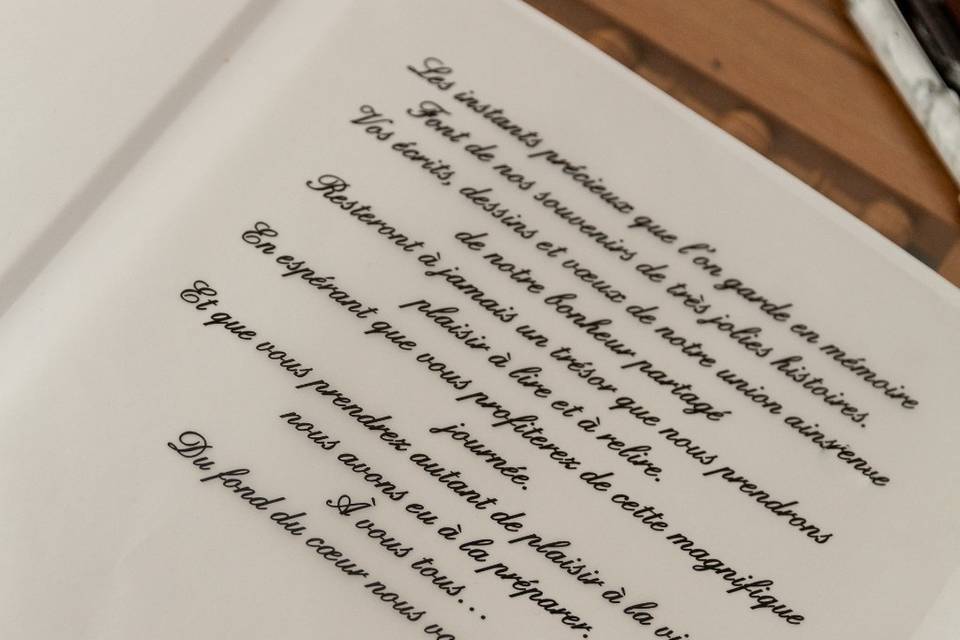 Les instants précieux que l'on garde en mémoire
Font de nos souvenirs de très jolies histoires.
Vos écrits, dessins et vœux de notre union
de notre bonheur partagé
Resteront à jamais un trésor que nous prendrons
plaisir à lire et à relire.
En espérant que vous profiterez de cette magnifique
journée.
Et que vous prendrez autant de plaisir à la
nous avons eu à la préparer.
À vous tous...
Du fond du cœur nous